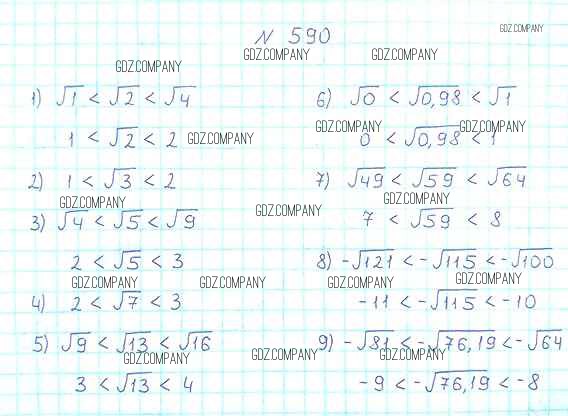 № 590
GDZ.COMPANY
GDZ.COMPANY GDZ.COMPANY
GDZ.COMPANY
1) √1 < √2 < √4
1 < √2 < 2 GDZ.COMPANY
2) 1 < √3 < 2
GDZ.COMPANY
3) √4 < √5 < √9
GDZ.COMPANY
2 < √5 < 3
GDZ.COMPANY GDZ.COMPANY
4) 2 < √7 < 3
5) √9 < √13 < √16
GDZ.COMPANY GDZ.COMPANY
3 < √13 < 4
6) √0 < √0,98 < √1
GDZ.COMPANY GDZ.COMPANY
0 < √0,98 < 1
7) √49 < √59 < √64
GDZ.COMPANY
7 < √59 < 8
8) -√121 < -√115 < -√100
GDZ.COMPANY GDZ.COMPANY
-11 < -√115 < -10
9) -√81 < -√76,19 < -√64
GDZ.COMPANY
-9 < -√76,19 < -8